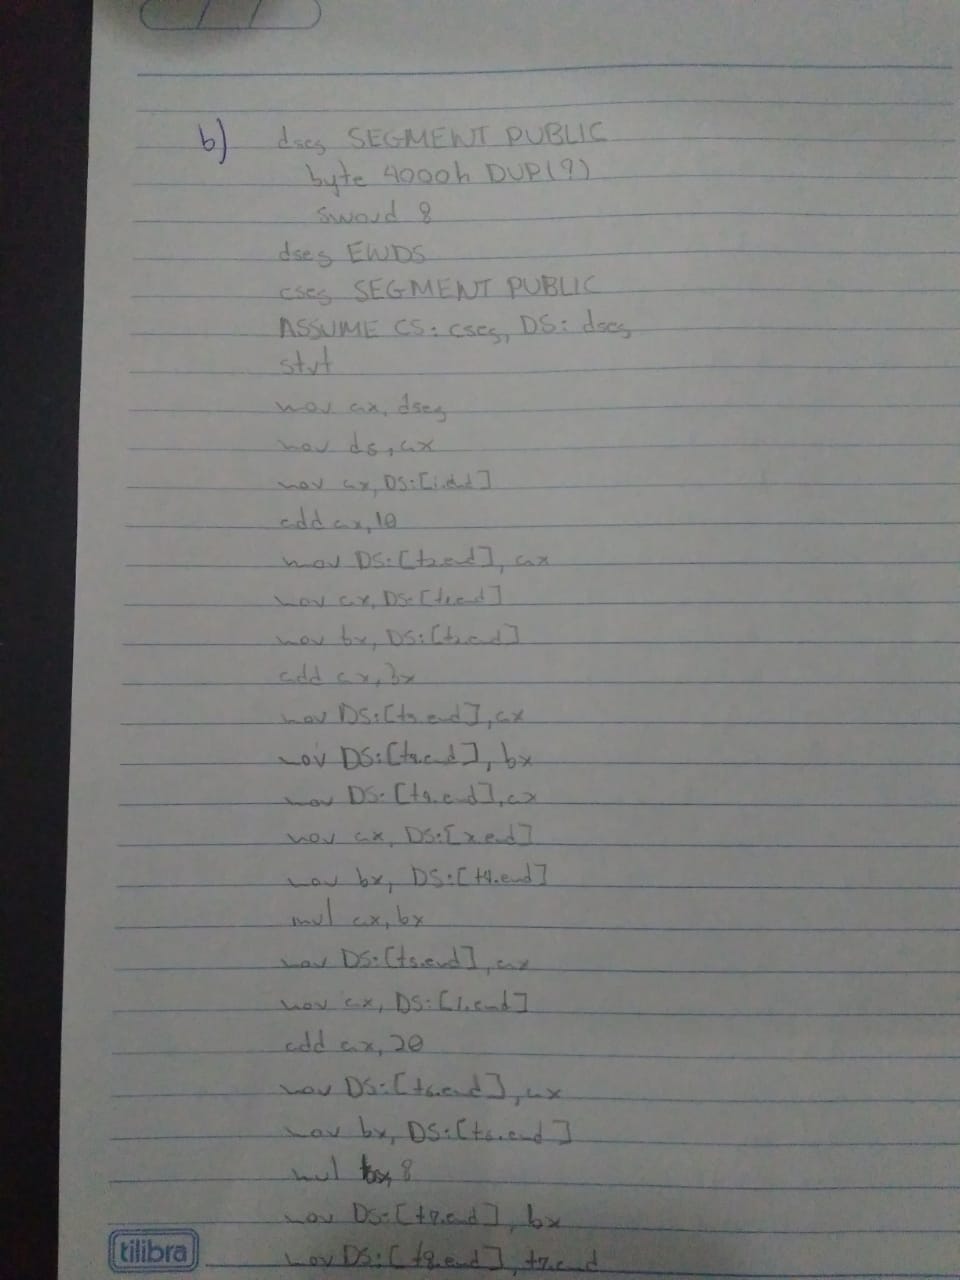 b) dseg SEGMENT PUBLIC
byte 4000h DUP(?)
sword 8
dseg ENDS
cseg SEGMENT PUBLIC
ASSUME CS: cseg, DS: dseg
strt
mov ax, dseg
mov ds, ax
mov ax, DS:[i.end]
add ax, 10
mov DS:[t2.end], ax
mov ax, DS:[t1.end]
mov bx, DS:[t2.end]
add ax, bx
mov DS:[t3.end], ax
mov DS:[ ], bx
mov DS:[t4.end], ax
mov ax, DS:[x.end]
mov bx, DS:[t4.end]
mul ax, bx
mov DS:[t5.end], ax
mov ax, DS:[ ]
add ax, 20
mov DS:[t6.end], ax
mov bx, DS:[t6.end]
mul bx, 8
mov DS:[t7.end], bx
mov DS:[t8.end], t7.end
tilibra